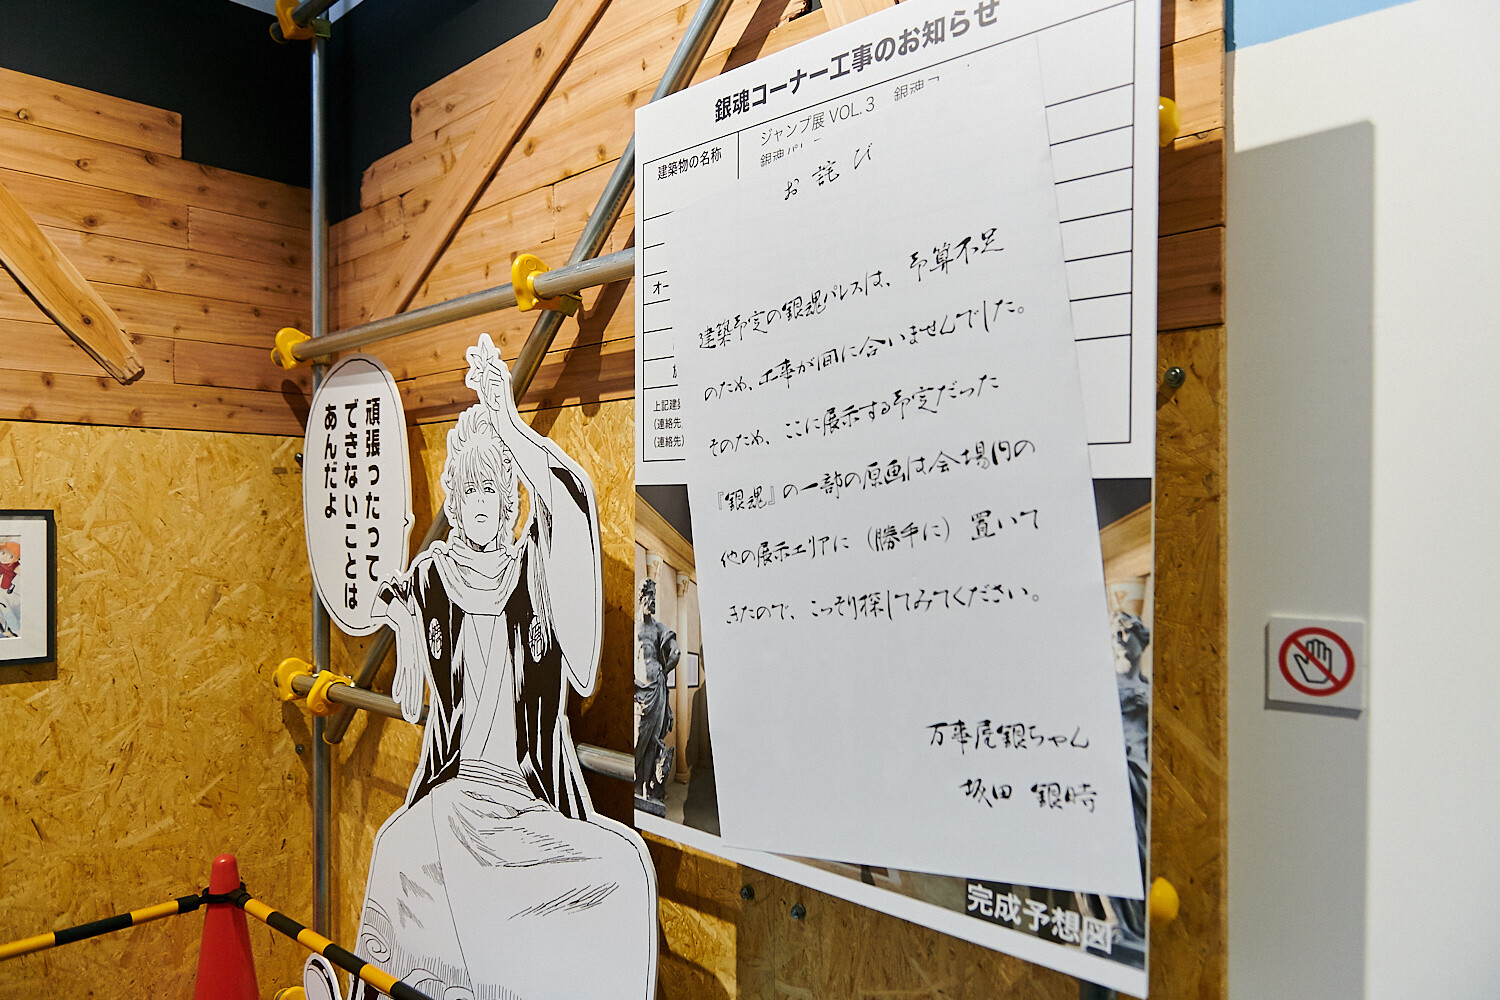 銀魂コーナー工事のお知らせ
建築物の名称
ジャンプ展 VOL.3
オー
上記建
(連絡先
(連絡先)
お詫び
建築予定の銀魂パレスは、予算不足
のため、工事が間に合いませんでした。
そのため、ここに展示する予定だった
『銀魂』の一部の原画は会場内の
他の展示エリアに(勝手に)置いて
きたので、こっそり探してみてください。
万事屋銀ちゃん
坂田 銀時
完成予想図
頑張ったって
できないことは
あんだよ